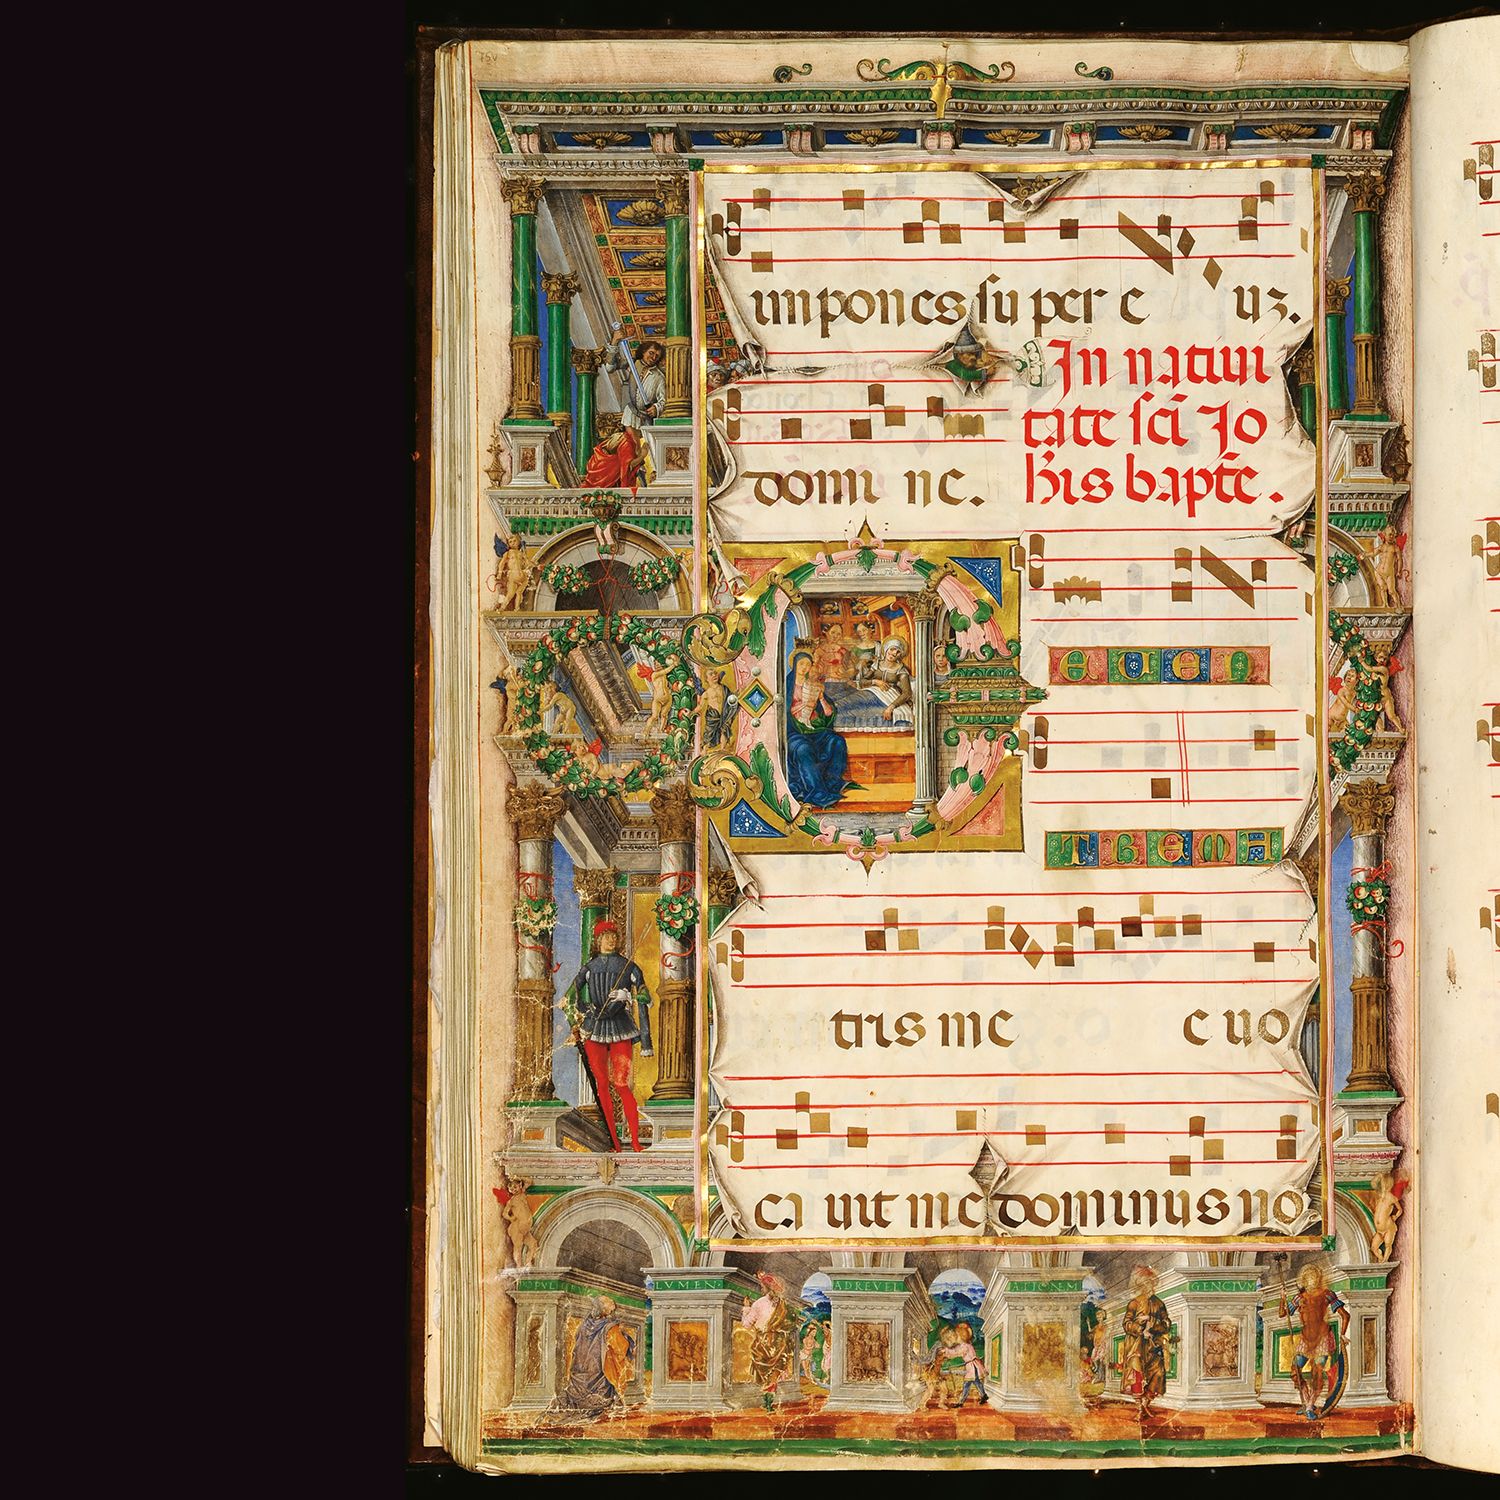 75v
impones super e uz.
domi ne.
In natiui
tate sci Jo
his bapte.
D E UEN
TREMA
tris me e uo
ca uit me dominus no
LVMEN AD REVEL ATIONEM GENCIVM ET GL